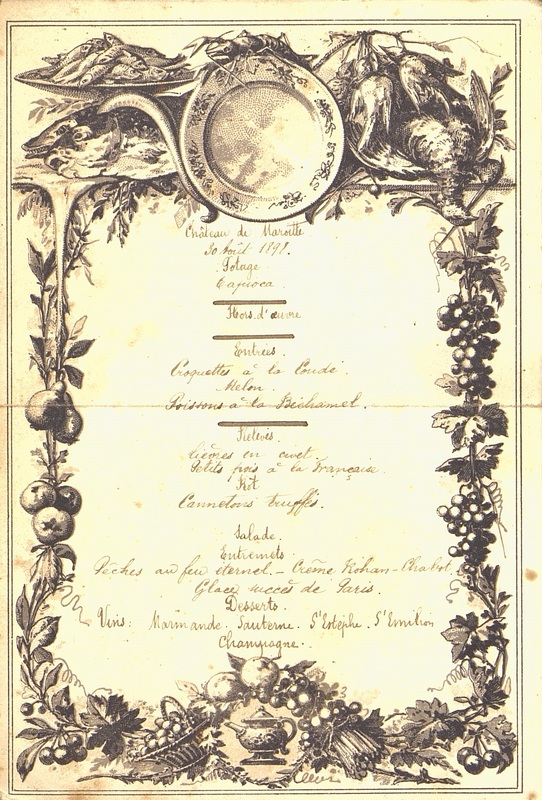 Château de Marotte
30 Août 1898.
Potage
Tapioca
Hors d'œuvre
Entrées.
Croquettes à la Condé.
Melon.
Poissons à la Béchamel.
Relevés.
Lièvres en civet.
Petits pois à la Française
Rôt
Cannetons truffés.
Salade.
Entremets
Pêches au feu éternel. - Crème Rohan-Chabot.
Glace succès de Paris.
Desserts.
Vins: Marmande. Sauterne. St Estèphe. St Emilion
Champagne.